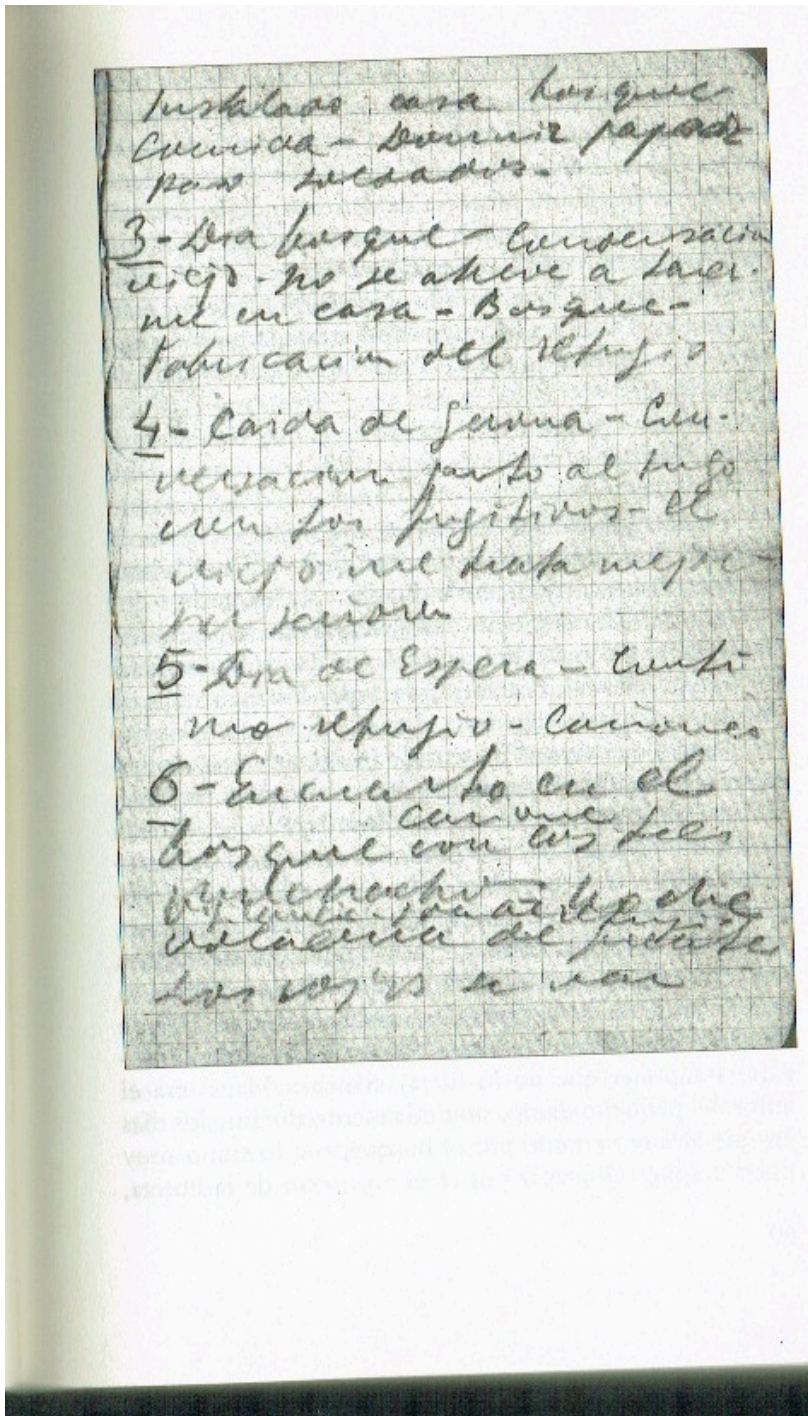 Instalado casa bosque
Comida - Dormir pajar
Paso soldados -
3 - Dia bosque - Conversacion
viejo - No se atreve a tener-
me en casa - Bosque -
Fabricacion del refugio
4 - Caida de Gerona - Con-
versacion junto al fuego
con los fugitivos - El
viejo me trata mejor
señora
5 - Dia de Espera - Conti
nuo refugio - Cañones
6 - Encuentro en el
bosque con los tres
muchachos - Noche
voladura de puentes
Los rojos se van